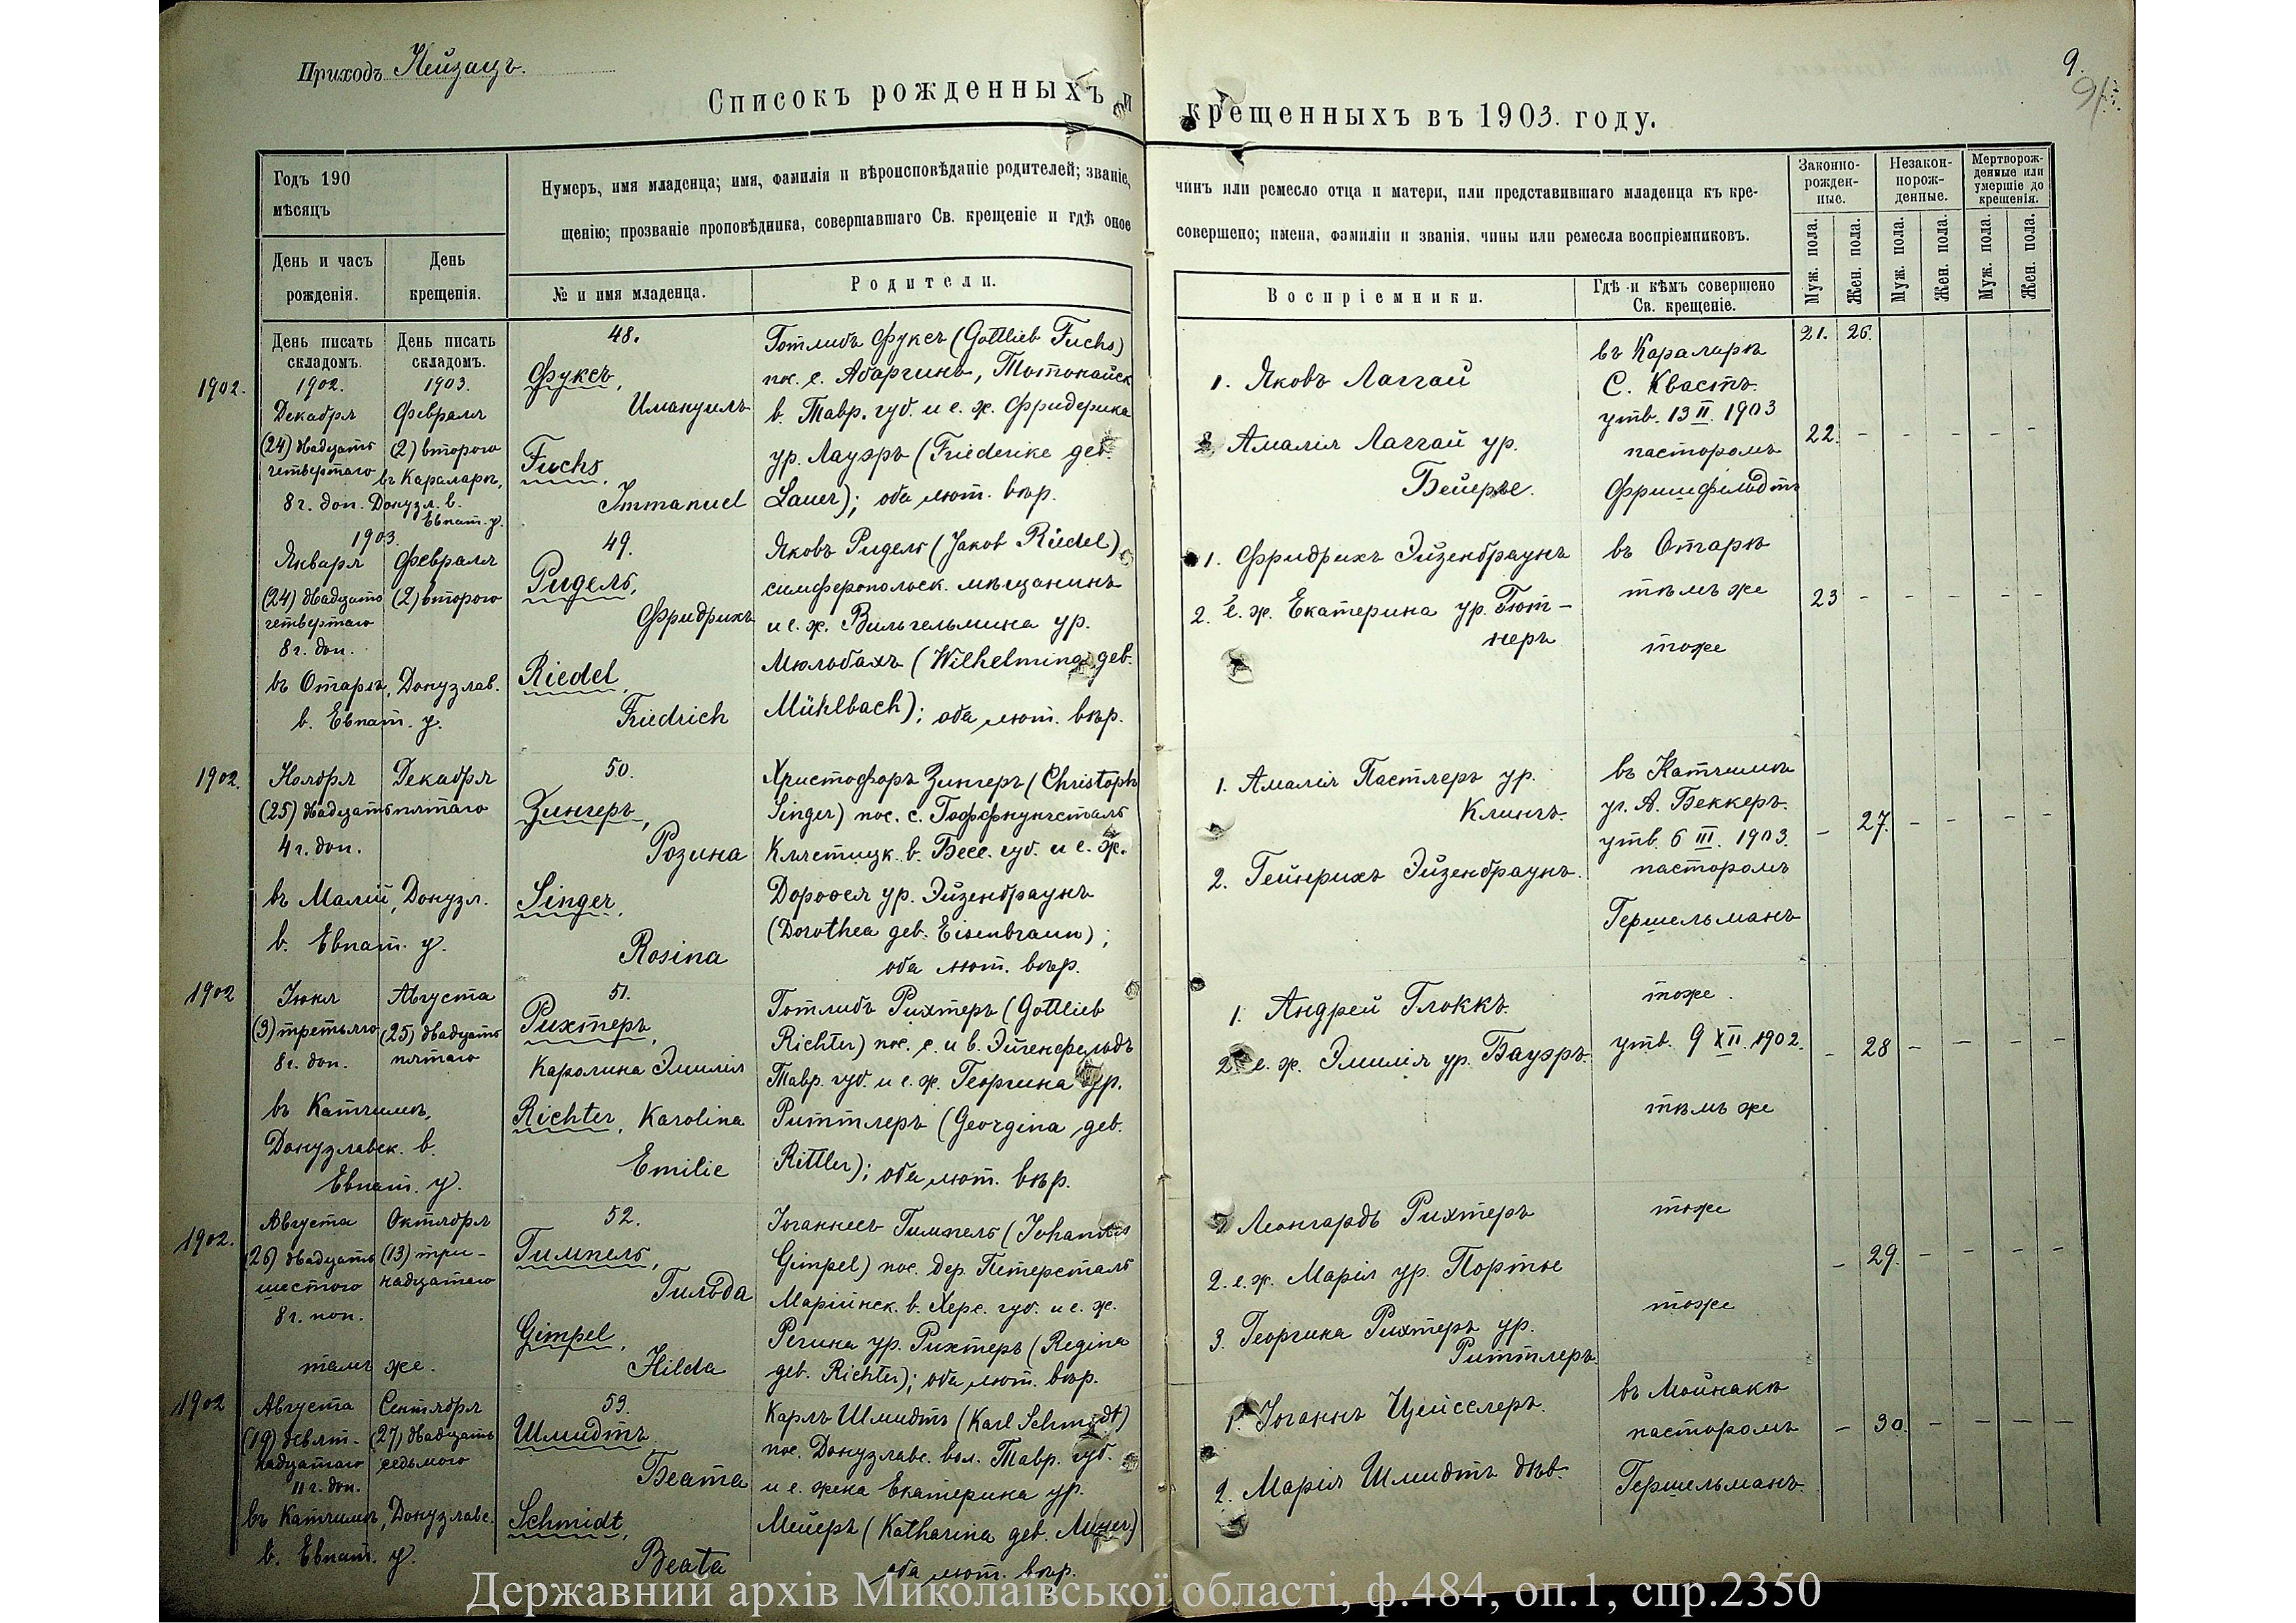 Приходъ Нейзацъ.
9.
Списокъ рожденныхъ и крещенныхъ въ 1903. году.
Годъ 190
мѣсяцъ
День и часъ
рожденія.
День
крещенія.
Нумеръ, имя младенца; имя, фамилія и вѣроисповѣданіе родителей; званіе,
щенію; прозваніе проповѣдника, совершавшаго Св. крещеніе и гдѣ оное
№ и имя младенца.
Родители.
чинъ или ремесло отца и матери, или представившаго младенца къ кре-
совершено; имена, фамиліи и званія, чины или ремесла воспріемниковъ.
Воспріемники.
Гдѣ и кѣмъ совершено
Св. крещеніе.
Законно-
рожден-
ные.
Незакон-
норож-
денные.
Мертворож-
денные или
умершіе до
крещенія.
Муж. пола.
Жен. пола.
Муж. пола.
Жен. пола.
Муж. пола.
Жен. пола.
День писать
складомъ.
День писать
складомъ.
1902.
1902.
Декабря
(24) двадцать
четвертаго
8 г. доп.
1903.
Февраля
(2) второго
въ Караларѣ,
Донузл. в.
Евпат. у.
48.
Фуксъ,
Имануилъ
Fuchs,
Immanuel
Готлибъ Фуксъ (Gottlieb Fuchs)
пос. с. Абаргинъ, Тотонайск
в. Тавр. губ. и е. ж. Фридерика
ур. Лауэръ (Friederike geb.
Lauer); оба лют. вѣр.
1. Яковъ Лаггай
2. Амалія Лаггай ур.
Бейерле.
въ Караларѣ
С. Квастъ.
утв. 13 II. 1903
пасторомъ
Фришфельдтъ
21. 26.
22. - - - - -
1903.
Января
(24) двадцать
четвертаго
8 г. доп.
Февраля
(2) второго
въ Отарѣ, Донузлав.
в. Евпат. у.
49.
Ридель,
Фридрихъ
Riedel,
Friedrich
Яковъ Ридель (Jakob Riedel)
симферопольск. мѣщанинъ
и е. ж. Вильгельмина ур.
Мюльбахъ (Wilhelmina geb.
Mühlbach); оба лют. вѣр.
1. Фридрихъ Эйзенбраунъ
2. е. ж. Екатерина ур. Гют-
неръ
въ Отарѣ
тѣмъ же
тоже
23 - - - - -
1902.
Ноября
(25) двадцать
4 г. доп.
Декабря
пятаго
въ Малій, Донузл.
в. Евпат. у.
50.
Зингеръ,
Розина
Singer,
Rosina
Христофоръ Зингеръ (Christoph
Singer) пос. с. Гоффнунгсталь
Клястицк. в. Бесс. губ. и е. ж.
Доровея ур. Эйзенбраунъ
(Dorothea geb. Eisenbraun);
оба лют. вѣр.
1. Амалія Пастлеръ ур.
Клингъ.
2. Гейнрихъ Эйзенбраунъ.
въ Катчимъ
уг. А. Беккеръ.
утв. 6 III. 1903.
пасторомъ
Гершельманъ
- 27. - - - -
1902
Іюня
(3) третьяго
8 г. доп.
Августа
(25) двадцать
пятаго
въ Катчимъ,
Донузлавск. в.
Евпат. у.
51.
Рихтеръ,
Каролина Эмилія
Richter, Karolina
Emilie
Готлибъ Рихтеръ (Gottlieb
Richter) пос. с. и в. Эйгенфельдъ
Тавр. губ. и е. ж. Георгина ур.
Риттлеръ (Georgina geb.
Rittler); оба лют. вѣр.
1. Андрей Глоккъ.
2. е. ж. Эмилія ур. Бауэръ.
тоже.
утв. 9 XII. 1902.
тѣмъ же
- 28 - - - -
1902.
Августа
(26) двадцать
шестого
8 г. поп.
Октября
(13) три-
надцатаго
тамъ же.
52.
Гимпель,
Гильда
Gimpel,
Hilda
Іоганнесъ Гимпель (Johannes
Gimpel) пос. дер. Петерсталь
Маріинск. в. Херс. губ. и е. ж.
Регина ур. Рихтеръ (Regina
geb. Richter); оба лют. вѣр.
1. Леонгардъ Рихтеръ
2. е. ж. Марія ур. Портъе
3. Георгина Рихтеръ ур.
Риттлеръ.
тоже
тоже
- 29. - - - -
1902
Августа
(19) девят-
надцатаго
11 г. доп.
Сентября
(27) двадцать
седьмого
въ Катчимъ, Донузлавс.
в. Евпат. у.
53.
Шмидтъ.
Беата
Schmidt,
Beata
Карлъ Шмидтъ (Karl Schmidt)
пос. Донузлавс. вол. Тавр. губ.
и е. жена Екатерина ур.
Мейеръ (Katharina geb. Meyer)
оба лют. вѣр.
1. Іоганнъ Цейсслеръ.
2. Марія Шмидтъ дѣв.
въ Мойнакѣ
пасторомъ
Гершельманъ.
- 30. - - - -
Державний архів Миколаївської області, ф.484, оп.1, спр.2350